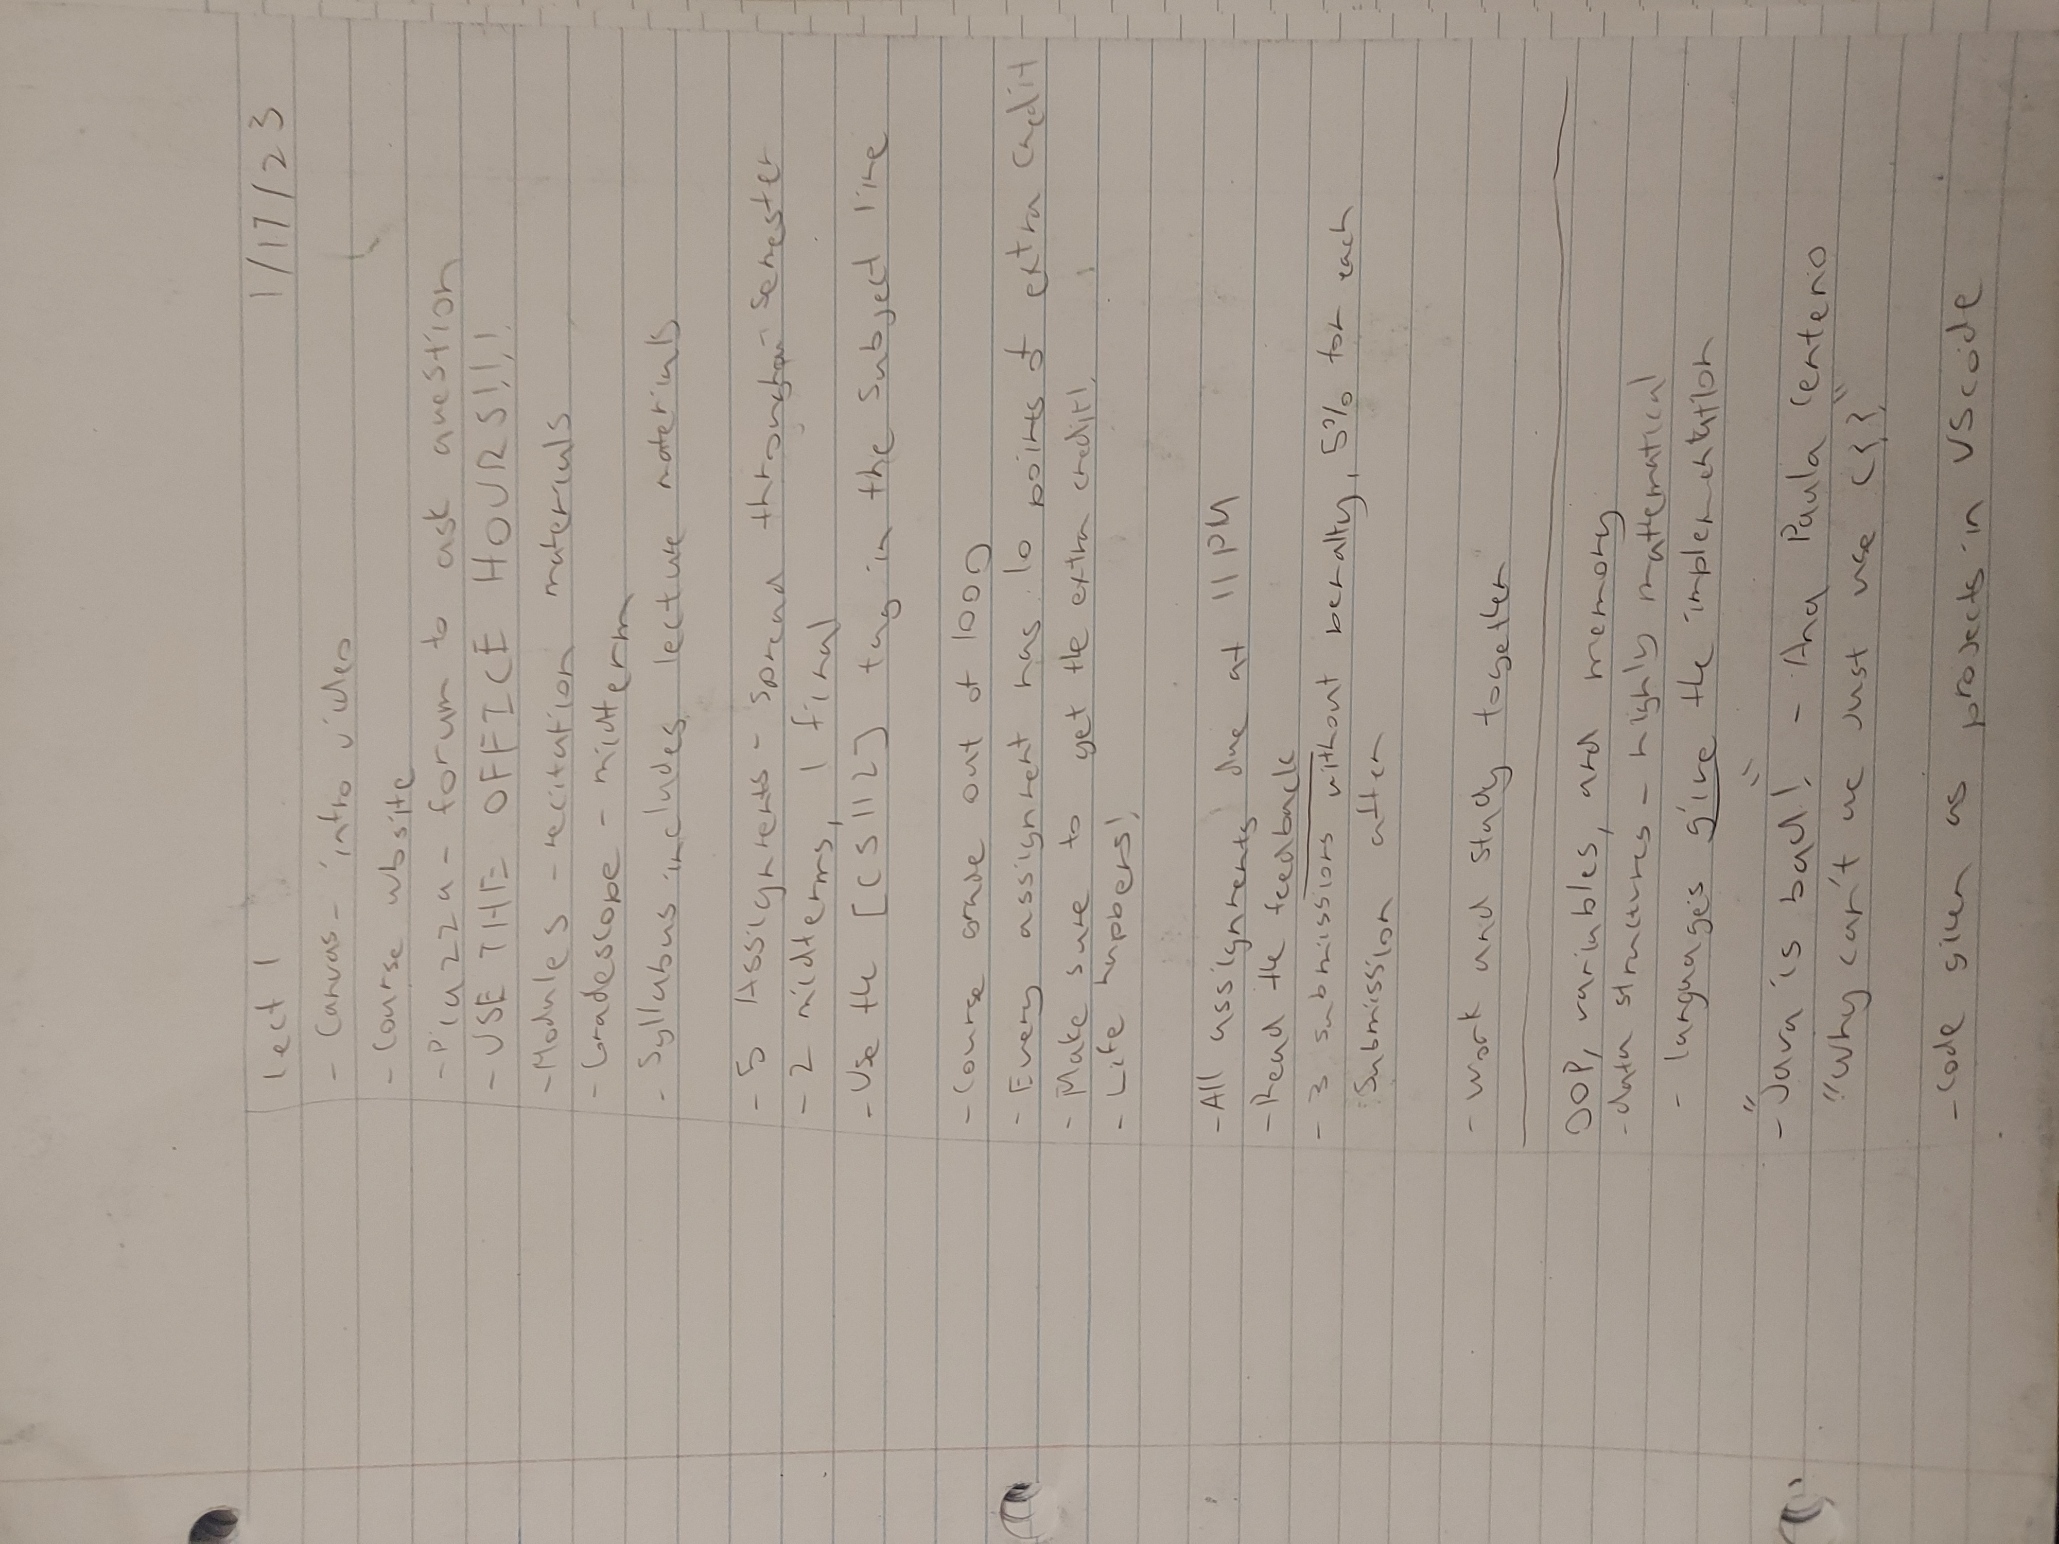 Lect 1 1/17/23
- Canvas - intro video
- Course wbsite
- Piazza - forum to ask question
- USE THE OFFICE HOURS!!!
- Modules - recitation materials
- Gradescope - midterm
- Syllabus includes lecture materials
- 5 Assignments - spread throughout semester
- 2 midterms, 1 final
- Use the [CS112] tag in the subject line
- Course grade out of 1000
- Every assignment has 10 points of extra credit
- Make sure to get the extra credit!
- Life happens!
- All assignments due at 11 PM
- Read the feedback
- 3 submissions without penalty, 5% for each
submission after
- Work and study together
OOP, variables, and memory
- data structures - highly mathematical
- languages give the implementation
- "Java is bad!" - Ana Paula Centeno
"Why can't we just use C{}"
- Code given as projects in VScode